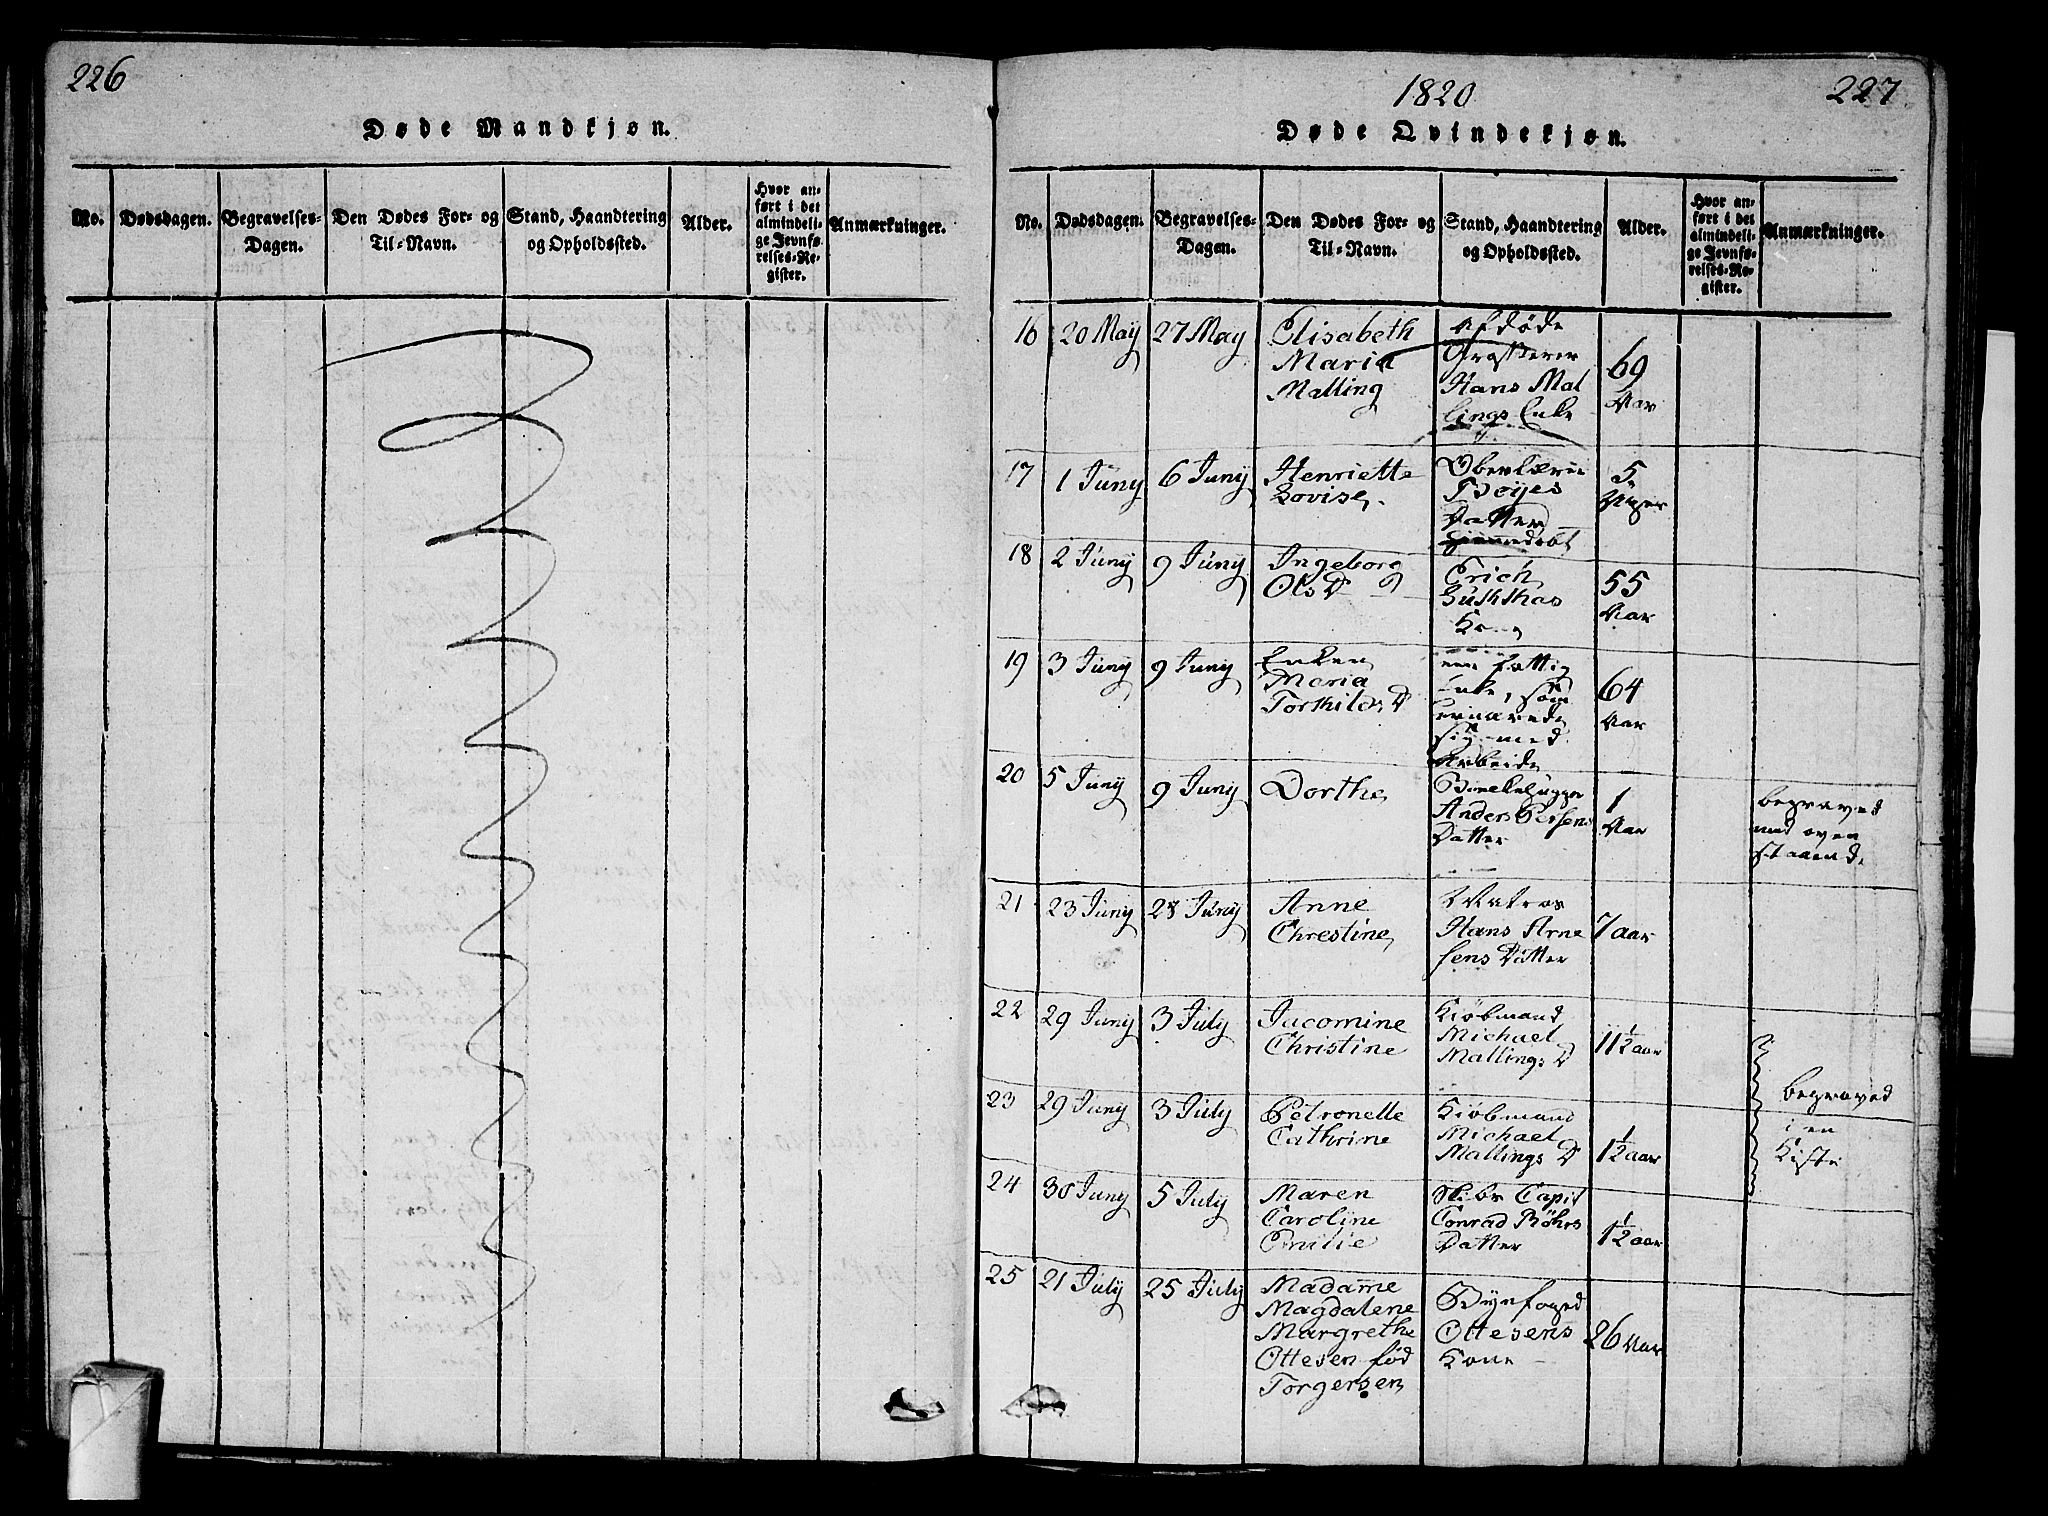 226
Døde Mandkjøn.
No. Dødsdagen. Begravelses-Dagen. Den Dødes For- og Til-Navn. Stand, Haandtering og Opholdssted. Alder. Hvor anført i det almindelige Jevnførelses-Register. Anmærkninger.
1820
227
Døde Qvindekjøn.
No. Dødsdagen. Begravelses-Dagen. Den Dødes For- og Til-Navn. Stand, Haandtering og Opholdssted. Alder. Hvor anført i det almindelige Jevnførelses-Register. Anmærkninger.
16 20 May 27 May Elisabeth
Maria
Malling
Afdøde
Hans Mal
lings Enke
69
Aar
17 1 Juny 6 Juny Henriette
Lovise
Overlærer
Boyes
Datter
hjemmedøbt
5
Uger
18 2 Juny 9 Juny Ingeborg
Ols D
Erich
Kone
55
Aar
19 3 Juny 9 Juny Enken
Maria
Torkilds D
en fattig
Enke, som
ernærede
sig med
Arbeide
64
Aar
20 5 Juny 9 Juny Dorthe
Anders Persens
Datter
1
Aar
begraved
med oven
staaende
21 23 Juny 28 Juny Anne
Chrestine
Matros
Hans Arne
sens Datter
7 aar
22 29 Juny 3 July Jacomine
Christine
Kiøbmand
Michael
Mallings D
11½ aar
23 29 Juny 3 July Petronelle
Cathrine
Kiøbmand
Michael
Mallings D
1½ aar
begraved
i en
Kiste
24 30 Juny 5 July Maren
Caroline
Emilie
Skibs Capit
Conrad Røhrs
Datter
1½ aar
25 21 July 25 July Madame
Magdalene
Margrethe
Ottesen fød
Torgersen
Byefoged
Ottesens
Kone
26 Aar